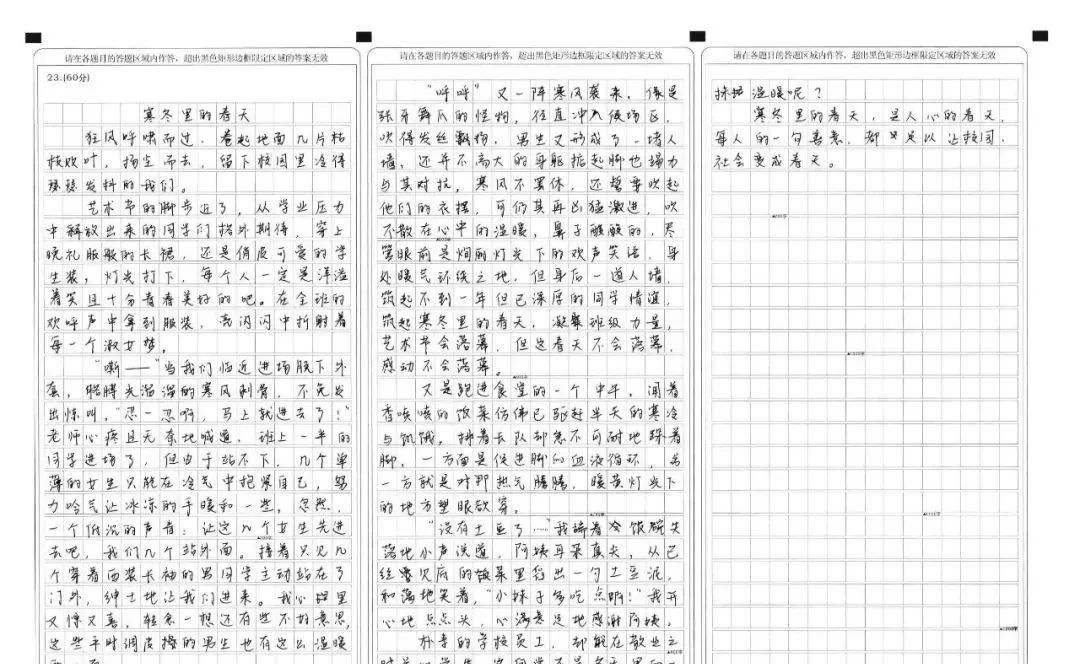 请在各题目的答题区域内作答，超出黑色矩形边框限定区域的答案无效
23.(60分)
寒冬里的春天
狂风呼啸而过，卷起地面几片枯
枝败叶，扬尘而去，留下校园里冷得
瑟瑟发抖的我们。
艺术节的脚步近了，从学业压力
中解放出来的同学们格外期待，穿上
晚礼服般的长裙，还是俏皮可爱的学
生装，灯光打下，每个人一定是洋溢
着笑且十分青春美好的吧。在全班的
欢呼声中拿到服装，亮闪闪中折射着
每一个淑女梦。
“嘶——”当我们临近进场脱下外
套，胳膊光溜溜的寒风刺骨，不免发
出惊叫，“忍一忍啊，马上就进去了！”
老师心疼且无奈地喊道，班上一半的
同学进场了，但由于站不下，几个单
薄的女生只能在冷气中抱紧自己，努
力哈气让冰冻的手暖和一些，忽然，
一个低沉的声音：让这几个女生先进
去吧，我们几个站外面。接着只见几
个穿着西装长袖的男同学主动站在了
门外，绅士地让我们进来。我心里
又惊又喜，轻念一想还有些不好意思，
这些平时调皮捣的男生也有这么温暖
请在各题目的答题区域内作答，超出黑色矩形边框限定区域的答案无效
“呼呼”又一阵寒风袭来，像是
张牙舞爪的怪物，径直冲入候场区，
吹得发丝飘扬，男生又形成了一堵人
墙，还并不高大的身躯掂起脚也竭力
与其对抗，寒风不罢休，还誓要吹起
他们的衣摆，可仍其再凶猛激进，吹
不散在心中的温暖，鼻子酸酸的，尽
管眼前是绚丽灯光下的欢声笑语，身
处暖气环绕之地，但身后一道人墙，
筑起不到一年但已深厚的同学情谊，
筑起寒冬里的春天，凝聚班级力量，
艺术节会落幕，但这春天不会落幕，
感动不会落幕。
又是跑进食堂的一个中午，闻着
香喷喷的饭菜仿佛已驱赶半天的寒冷
与饥饿，排着长队却急不可耐地跺着
脚，一方面是促进脚的血液循环，另
一方就是对那热气腾腾，暖黄灯光下
的地方望眼欲穿。
“没有土豆了……”我端着冷饭碗失
落地小声说道，阿姨耳朵真尖，从已
经见底的饭菜里舀出一勺土豆泥，
和蔼地笑着，“小妹子多吃点啊！”我开
心地点点头，心满意足地感谢阿姨。
朴素的学校员工，却能在散业之
请在各题目的答题区域内作答，超出黑色矩形边框限定区域的答案无效
温暖呢？
寒冬里的春天，是人心的春天，
每人的一句善意，都足足以让校园，
社会变成春天。